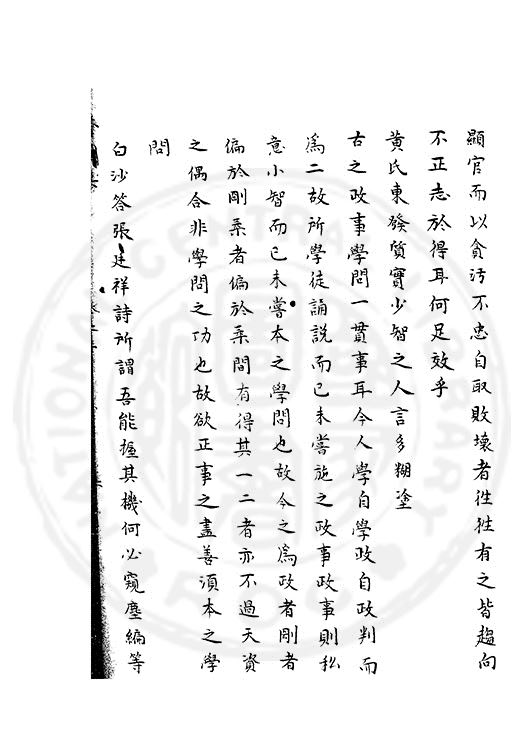 顯官而以貪污不忠自取敗壞者徃徃有之皆趨向
不正志於得耳何足效乎
黄氏東發質實少智之人言多糊塗
古之政事學問一貫事耳今人學自學政自政判而
爲二故所學徒誦説而已未嘗施之政事政事則私
意小智而已未嘗本之學問也故今之爲政者剛者
偏於剛柔者偏於柔間有得其一二者亦不過天資
之偶合非學問之功也故欲正事之盡善湏本之學
問
白沙答張廷祥詩所謂吾能握其機何必窺塵編等